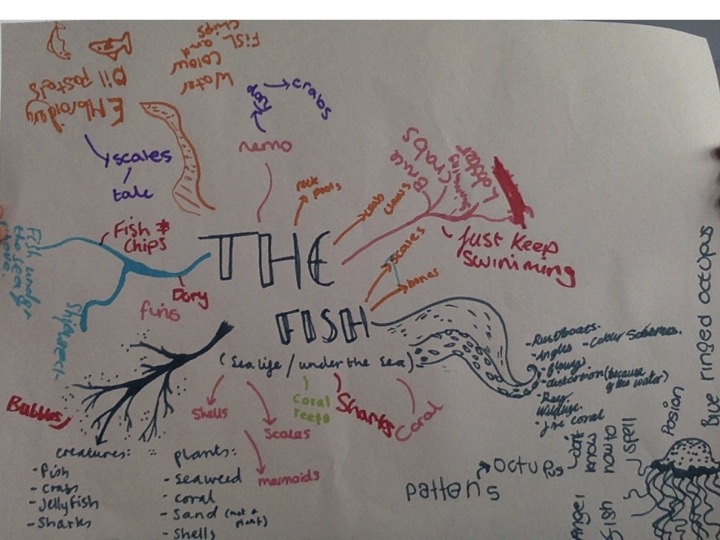 EMbroidery
Oil pastels
Water
Colour
and
Fish
Chips
scales
tale
nemo
Dory
crabs
rock
pools
crab
claws
Bruce
Crabs
Lobster
Just Keep
Swiniming
Fish &
Chips
Dory
fins
Fish under
the sea
Shipwreck
THE
FISH
(Sea life / under the sea)
scales
bones
Bubbles
Shells
Scales
mermaids
coral
reefs
Sharks
Coral
- Rust boats.
- Angles
- Colour Schemes.
- distortion (because
of the water)
- Rust.
Wildlife.
- The coral
creatures:
- Fish
- Crabs
- Jellyfish
- Sharks
plants:
- Seaweed
- coral
- Sand (not a
plant)
- Shells
pattens
Octupus
Angel
Fish
don't
know
how to
spell
Posion
Blue ringed occtupus